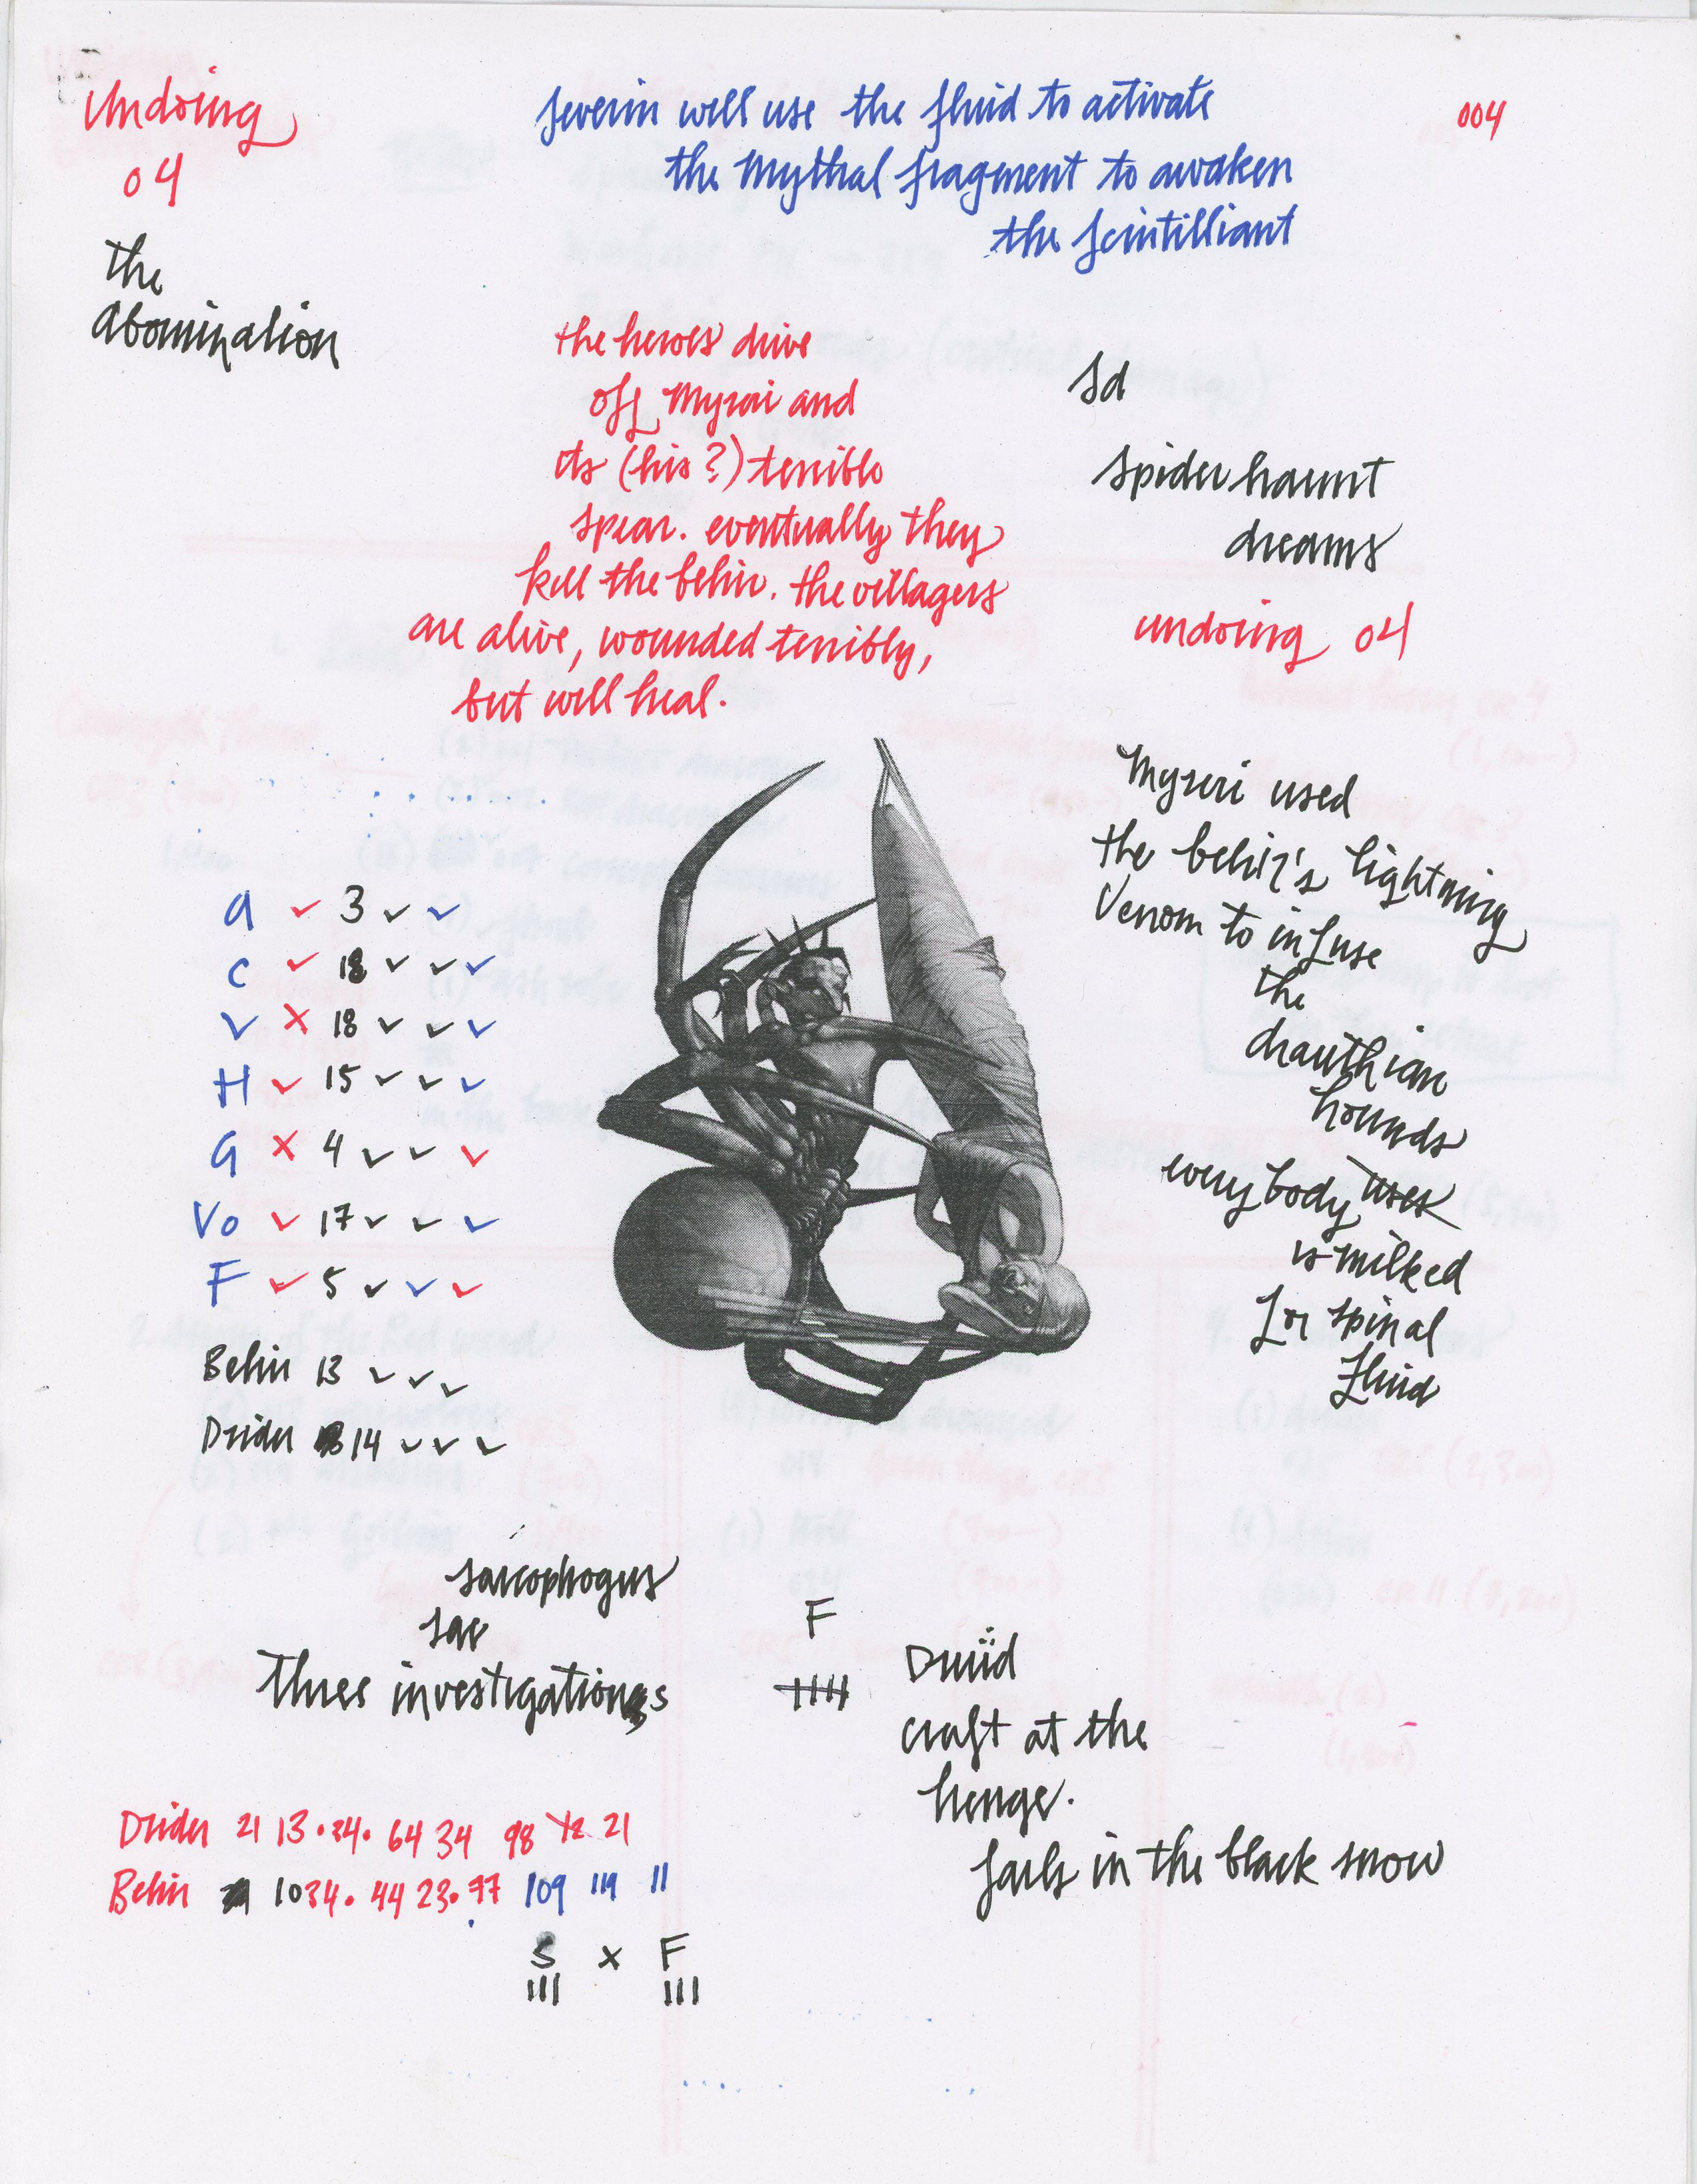 Undoing
04
the
abomination
Severin will use the fluid to activate
the mythal fragment to awaken
the scintilliant
004
the heroes drive
off Myrai and
its (his?) terrible
spear. eventually they
kill the behir. the villagers
are alive, wounded terribly,
but will heal.
Sd
spider haunt
dreams
undoing 04
used
the behir's lightning
venom to infuse
the
drauthian
hounds
everybody uses
is milked
for spinal
fluid
A ✓ 3 ✓ ✓
C ✓ 18 ✓ ✓ ✓
V × 18 ✓ ✓ ✓
H ✓ 15 ✓ ✓ ✓
G × 4 ✓ ✓ ✓
Vo ✓ 17 ✓ ✓ ✓
F ✓ 5 ✓ ✓ ✓
Behir 13 ✓ ✓ ✓
Drider 14 ✓ ✓ ✓
sarcophogus
sac
three investigations
F
Druid
craft at the
henge.
fails in the black snow
Drider 21 13 • 34 • 64 34 98 21
Behir 10 34 • 44 23 • 97 109 119 11
S × F
III III